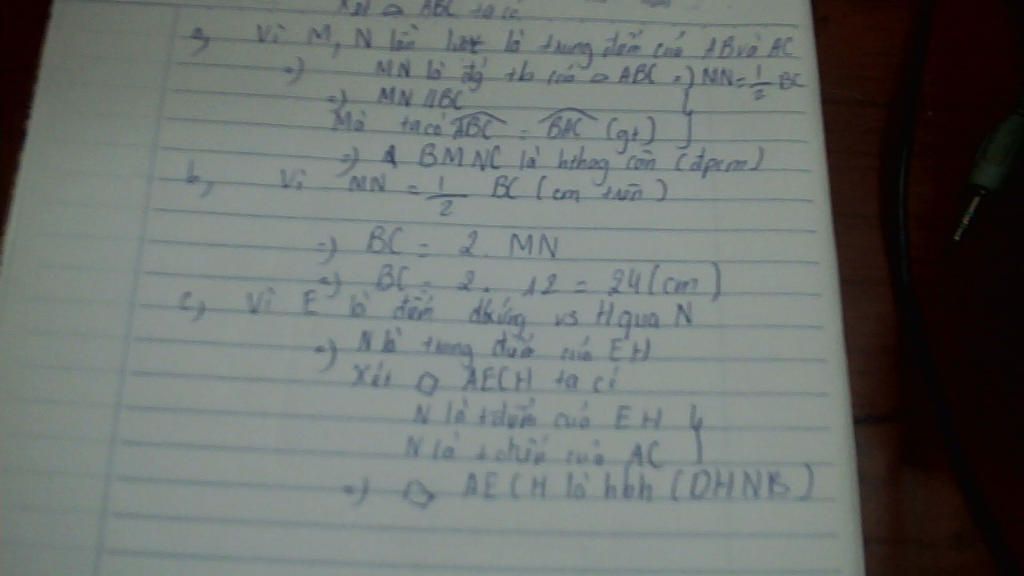 Xét △ ABC ta có
a, Vì M, N lần lượt là trung điểm của AB và AC
=) MN là đg tb của △ ABC =) MN = 1/2 BC
=) MN // BC
Mà ta có ABC = BAC (gt)
=) BMNC là hthag cân (đpcm)
b, Vì MN = 1/2 BC (cm trên)
=) BC = 2. MN
=) BC = 2. 12 = 24 (cm)
c, Vì E là điểm đxứng vs H qua N
=) N là trung điểm của EH
Xét AECH ta có
N là tđiểm của EH
N là tđiểm của AC
=) AECH là hbh (DHNB)